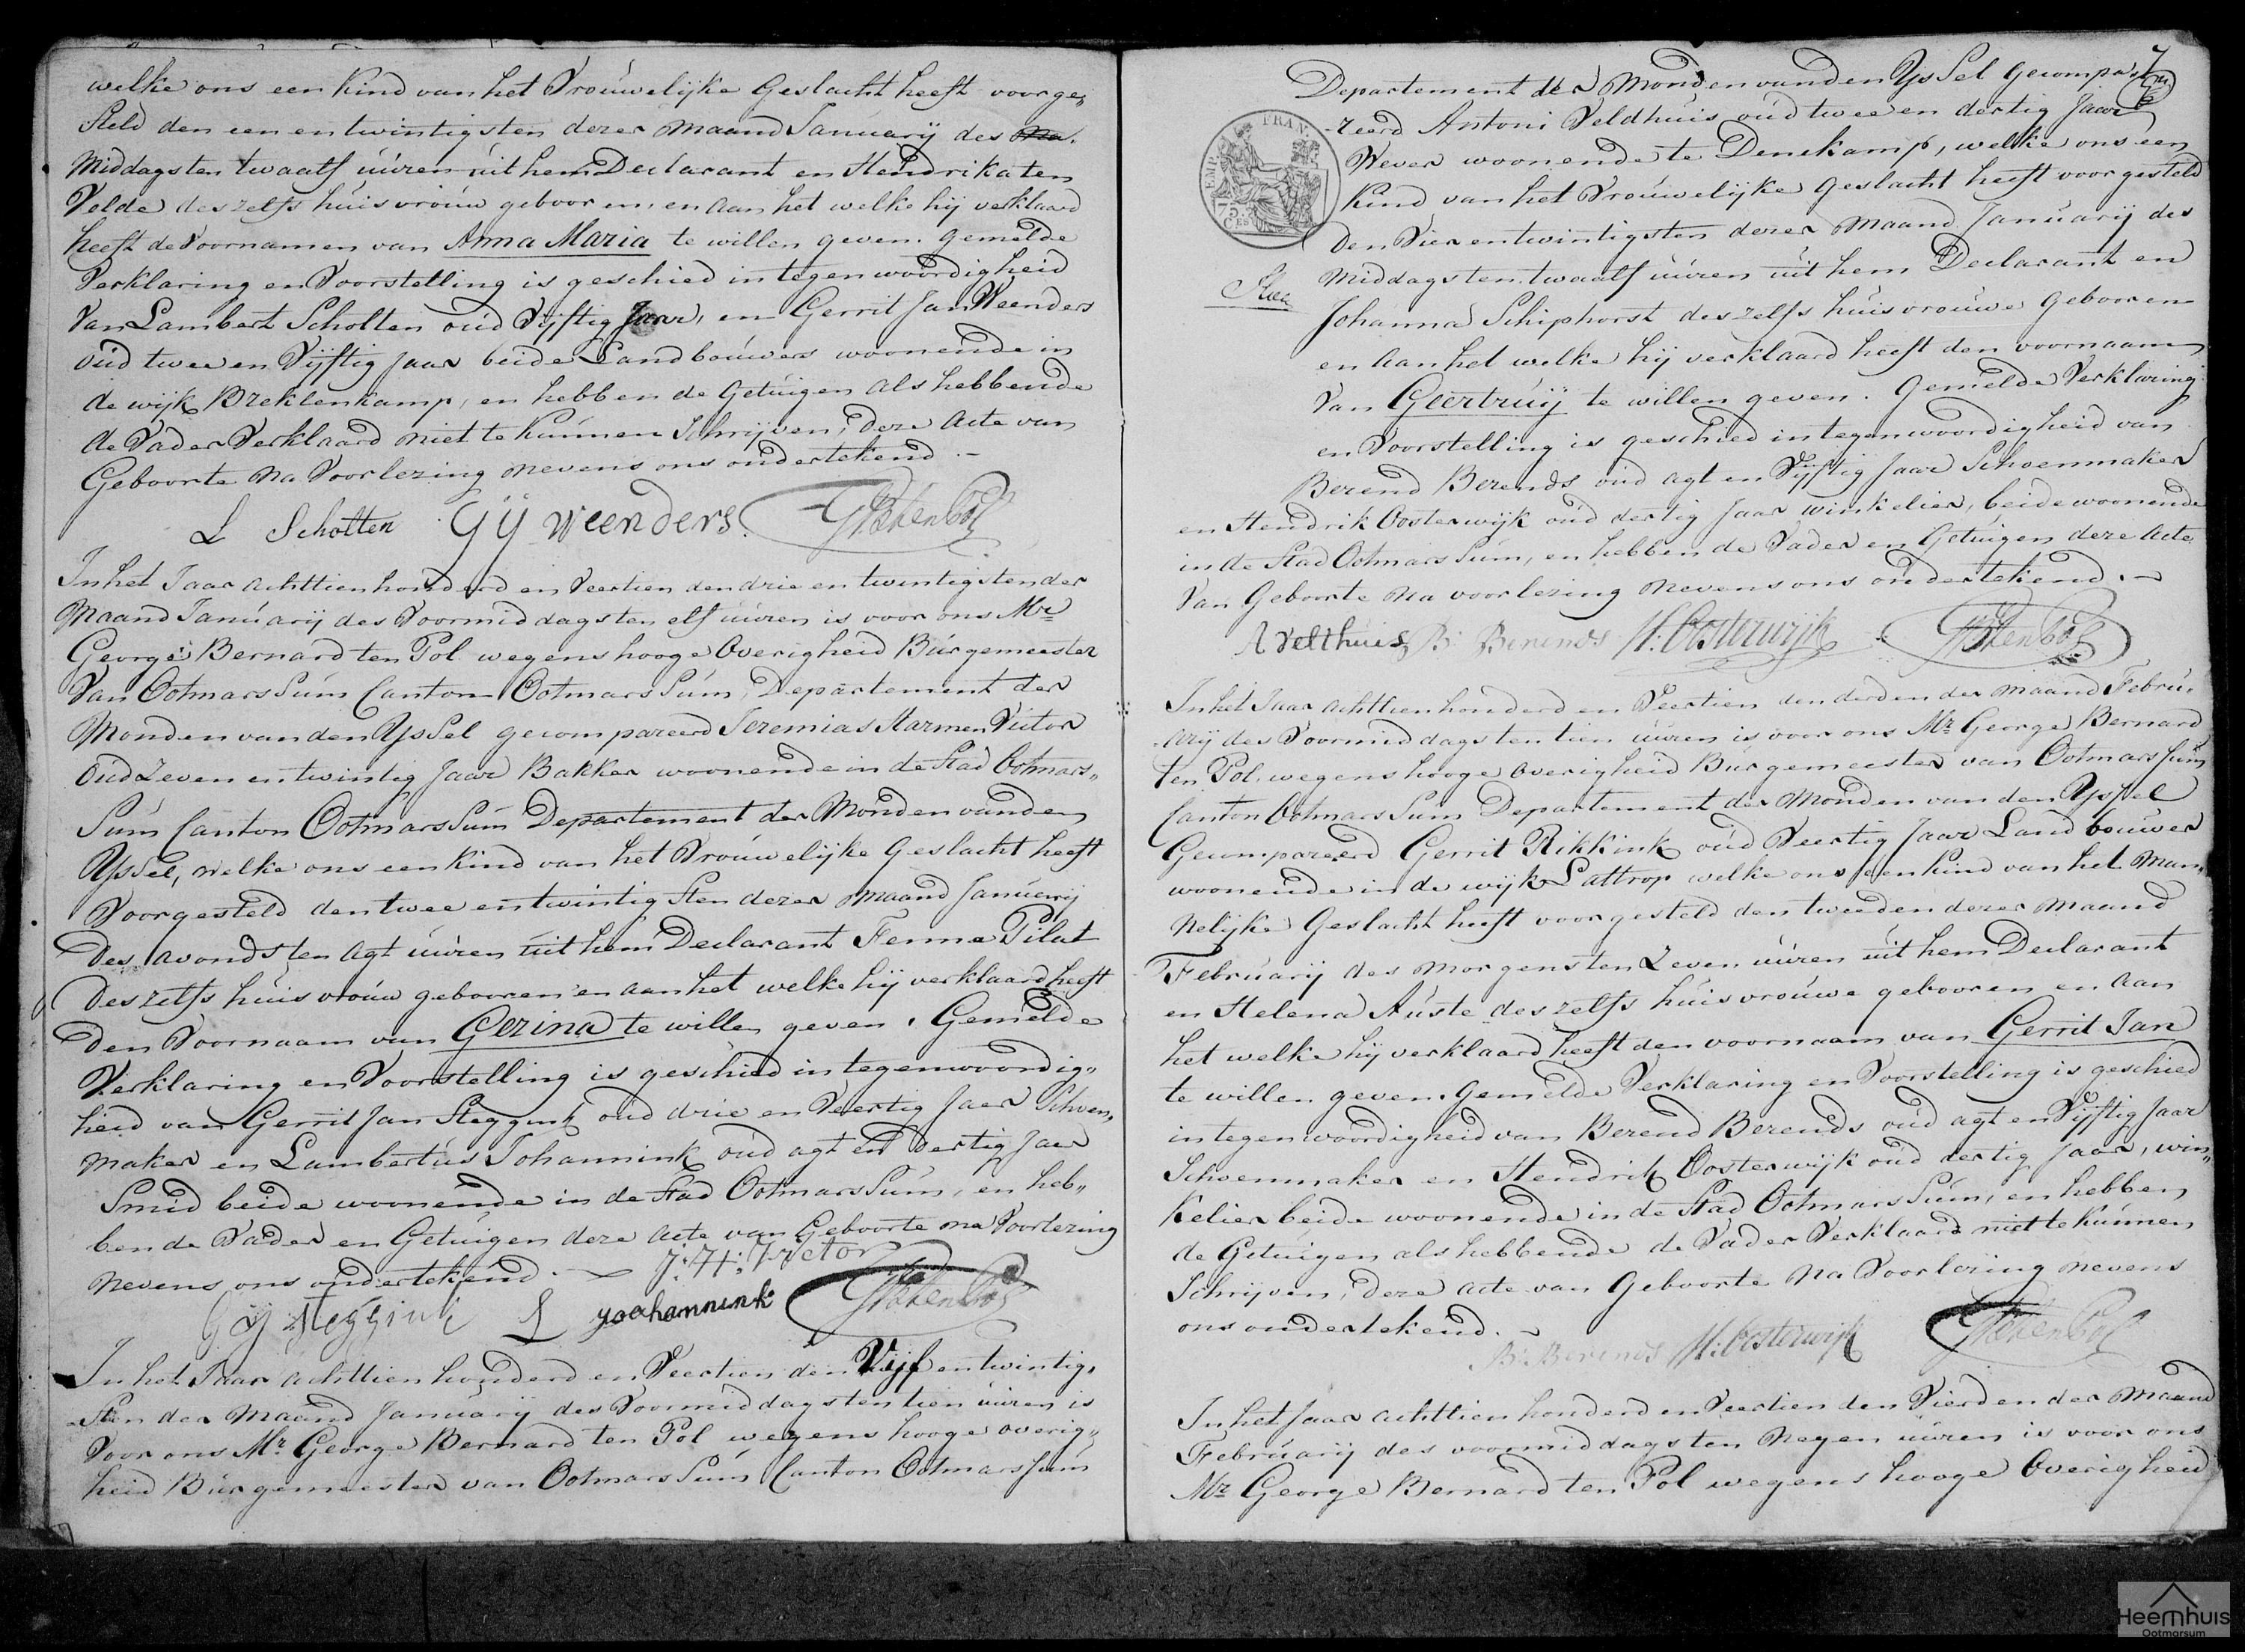 welke ons een kind van het Vrouwelijke Geslacht heeft voorge„
steld den een en twintigsten dezer maand Januarij des ma.
Middags ten twaalf uuren uit hem Declarant en Hendrika ten
Velde deszelfs huisvrouw gebooren, en aan het welke hij verklaard
heeft de Voornamen van Anna Maria te willen geven. Gemelde
Verklaring en Voorstelling is geschied in tegenwoordigheid
Van Lambert Scholten oud Vijftig Jaar, en Gerrit Jan Weenders
oud twee en Vijftig Jaar beide Landbouwers woonende in
de wijk Breklenkamp, en hebben de Getuigen als hebbende
de Vader Verklaard niet te kunnen Schrijven, deze Acte van
Geboorte na Voorlezing nevens ons ondertekend. —
L Scholten GJ Weenders. GB ten Pol
In het Jaar achttienhonderd en Veertien den drie en twintigsten der
Maand Januarij des Voormiddags ten elf uuren is voor ons Mr
George Bernard ten Pol wegens hooge Overigheid Burgemeester
Van OotmarsSum Canton OotmarsSum, Departement der
Monden van den YsSel gecompareerd Jeremias Harmen Victor
oud Zeven en twintig Jaar Bakker woonende in de Stad Ootmars„
Sum Canton OotmarsSum Departement der Monden van den
YsSel, welke ons een kind van het Vrouwelijke Geslacht heeft
Voorgesteld den twee en twintigsten dezer maand Januarij
des avonds ten agt uuren uit hem Declarant Fenna Pilat
deszelfs huisvrouw gebooren en aan het welke hij verklaard heeft
den Voornaam van Gezina te willen geven. Gemelde
Verklaring en Voorstelling is geschied in tegenwoordig„
heid van Gerrit Jan Steggink oud drie en Veertig Jaar Schoen„
maker en Lambertus Johannink oud agt en dertig Jaar
Smid beide woonende in de Stad OotmarsSum, en heb„
ben de Vader en Getuigen deze acte van Geboorte na Voorlezing
nevens ons ondertekend. — J: H: Victor
GJ Steggink L Johannink GB ten Pol
In het Jaar achttien honderd en Veertien den Vijf en twintig„
sten der Maand Januarij des Voormiddags ten tien uuren is
Voor ons Mr George Bernard ten Pol wegens hooge overig„
heid Burgemeester van OotmarsSum Canton OotmarsSum
7
Departement der Monden van den YsSel gecompa„
reerd Antoni Veldhuis oud twee en dertig Jaar
Wever woonende te Denekamp, welke ons een
kind van het Vrouwelijke Geslacht heeft voorgesteld
den Vier en twintigsten dezer Maand Januarij des
Middags ten twaalf uuren uit hem Declarant en
Johanna Schiphorst deszelfs huisvrouwe Gebooren
en aan het welke hij verklaard heeft den voornaam
Van Geertruij te willen geven. Gemelde Verklaring
en Voorstelling is geschied in tegenwoordigheid van
Berend Berends oud agt en Vijftig Jaar Schoenmaker
en Hendrik Oosterwijk oud dertig Jaar winkelier, beide woonende
in de Stad OotmarsSum, en hebben de Vader en Getuigen deze Acte
Van Geboorte na voorlezing nevens ons ondertekend. —
A Velthuis B: Berends H: Oosterwijk GB ten Pol
In het Jaar achttienhonderd en Veertien den derden der maand Febru„
arij des Voormiddags ten tien uuren is voor ons Mr George Bernard
ten Pol wegens hooge overigheid Burgemeester van OotmarsSum
Canton OotmarsSum Departement der Monden van den YsSel
Gecompareerd Gerrit Rikkink oud Veertig Jaar Landbouwer
woonende in de wijk Lattrop welke ons een kind van het Man„
nelijke Geslacht heeft voorgesteld den tweeden dezer maand
Februarij des morgens ten Zeven uuren uit hem Declarant
en Helena Auste deszelfs huisvrouwe gebooren en aan
het welke hij verklaard heeft den voornaam van Gerrit Jan
te willen geven. Gemelde Verklaring en Voorstelling is geschied
in tegenwoordigheid van Berend Berends oud agt en Vijftig Jaar
Schoenmaker en Hendrik Oosterwijk oud dertig Jaar, win„
kelier beide woonende in de Stad OotmarsSum, en hebben
de Getuigen als hebbende de Vader Verklaard niet te kunnen
Schrijven, deze acte van Geboorte na Voorlezing nevens
ons ondertekend. —
B: Berends H: Oosterwijk GB ten Pol
In het Jaar achttien honderd en Veertien den Vierden der Maand
Februarij des voormiddags ten Negen uuren is voor ons
Mr George Bernard ten Pol wegens hooge Overigheid
EMP. FRAN.
75 CES
Heemhuis
Ootmarsum